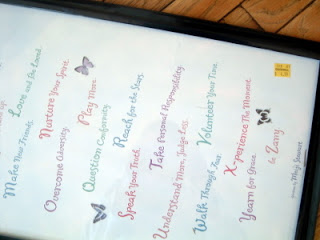 Love and Be Loved.
Make New Friends.
Nurture Your Spirit.
Overcome Adversity.
Play More.
Question Conformity.
Reach for the Stars.
Speak Your Truth.
Take Personal Responsibility.
Understand More, Judge Less.
Volunteer Your Time.
Walk Through Fear.
X-perience The Moment.
Yearn for Grace.
be Zany
Meiji Stewart